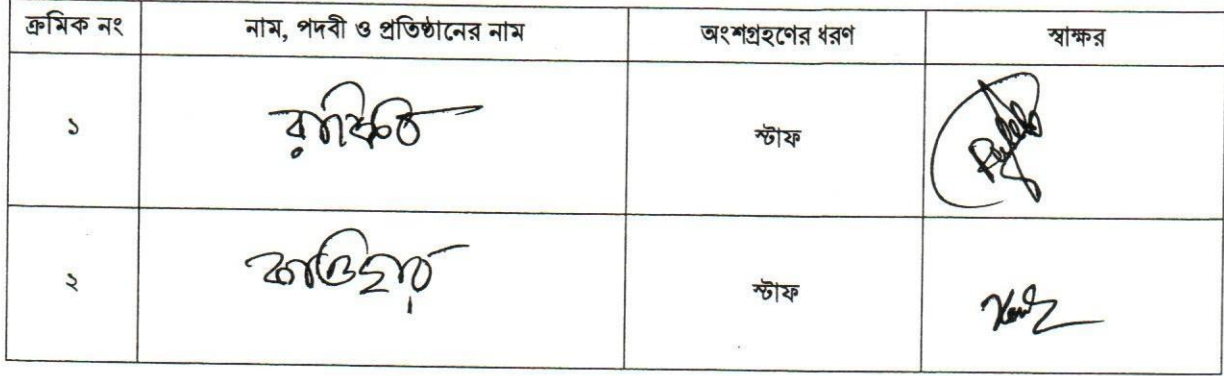 ক্রমিক নং নাম, পদবী ও প্রতিষ্ঠানের নাম অংশগ্রহণের ধরণ স্বাক্ষর
১ রাকিব স্টাফ
২ কাওছার স্টাফ